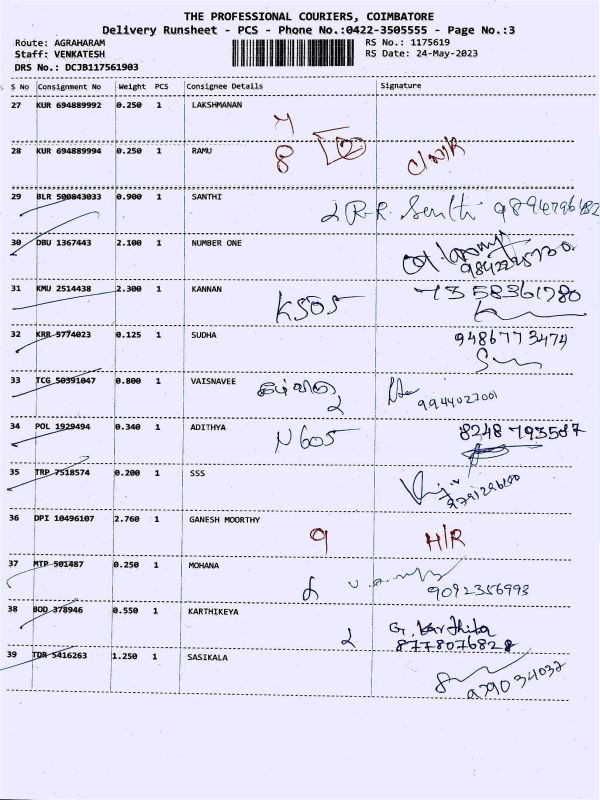 THE PROFESSIONAL COURIERS, COIMBATORE
Delivery Runsheet - PCS - Phone No.:0422-3505555 - Page No.:3
Route: AGRAHARAM
RS No.: 1175619
Staff: VENKATESH
RS Date: 24-May-2023
DRS No.: DCJB117561903
S No Consignment No Weight PCS Consignee Details Signature
27 KUR 694889992 0.250 1 LAKSHMANAN
28 KUR 694889994 0.250 1 RAMU
8 2 C/N/R
29 BLR 500843033 0.900 1 SANTHI
30 DBU 1367443 2.100 1 NUMBER ONE
31 KMU 2514438 2.300 1 KANNAN
K505 7358361780
32 KRR 5774023 0.125 1 SUDHA 9486773474
33 TCG 50391047 0.800 1 VAISNAVEE
9944027001
34 POL 1929494 0.340 1 ADITHYA
N605 8248793587
35 TRP 7518574 0.200 1 SSS
36 DPI 10496107 2.760 1 GANESH MOORTHY
9 H/R
37 MTP 501487 0.250 1 MOHANA
9092356993
38 BOD 378946 0.550 1 KARTHIKEYA
G. Karthika
8778076828
39 TDR 5416263 1.250 1 SASIKALA